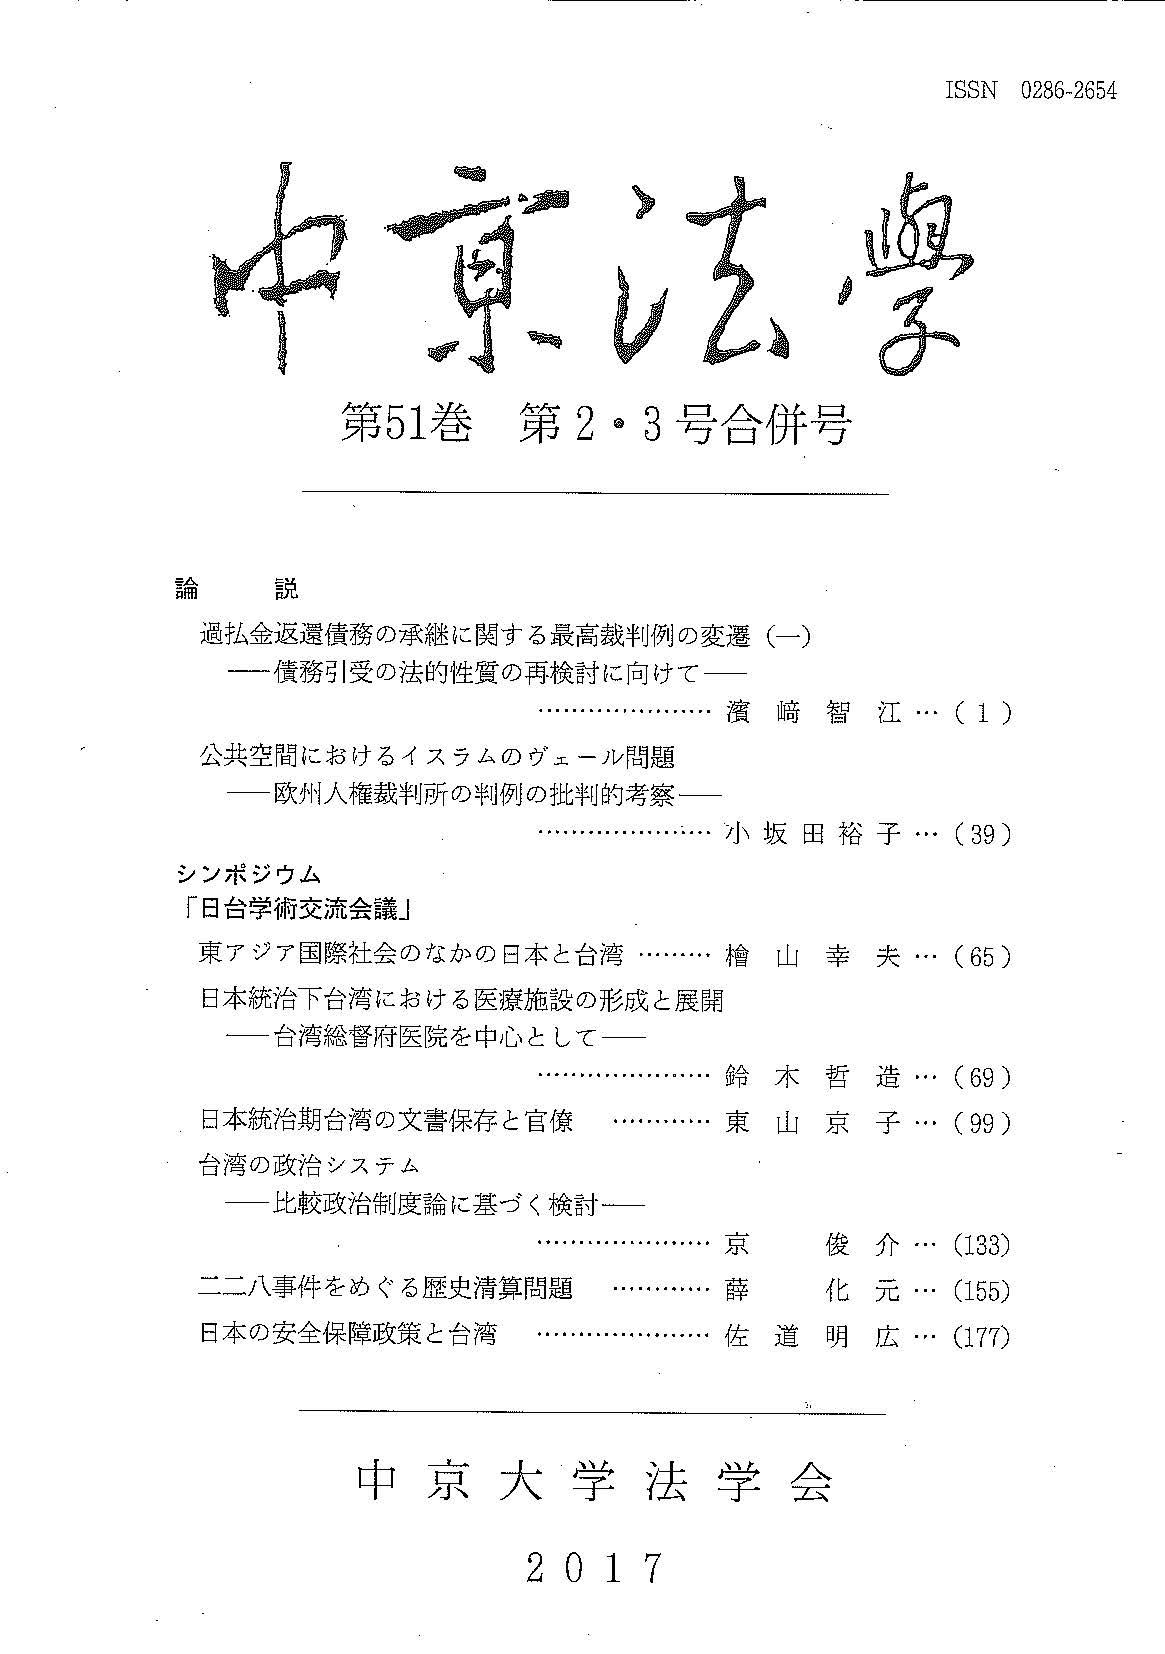 ISSN 0286-2654
中京法學
第51巻 第2・3号合併号
論 説
過払金返還債務の承継に関する最高裁判例の変遷（一）
――債務引受の法的性質の再検討に向けて――
…………………濱 﨑 智 江…（ 1 ）
公共空間におけるイスラムのヴェール問題
――欧州人権裁判所の判例の批判的考察――
…………………小 坂 田 裕 子…（39）
シンポジウム
「日台学術交流会議」
東アジア国際社会のなかの日本と台湾………檜 山 幸 夫…（65）
日本統治下台湾における医療施設の形成と展開
――台湾総督府医院を中心として――
…………………鈴 木 哲 造…（69）
日本統治期台湾の文書保存と官僚 …………東 山 京 子…（99）
台湾の政治システム
――比較政治制度論に基づく検討――
…………………京 俊 介…（133）
二二八事件をめぐる歴史清算問題 …………薛 化 元…（155）
日本の安全保障政策と台湾 …………………佐 道 明 広…（177）
中京大学法学会
2017